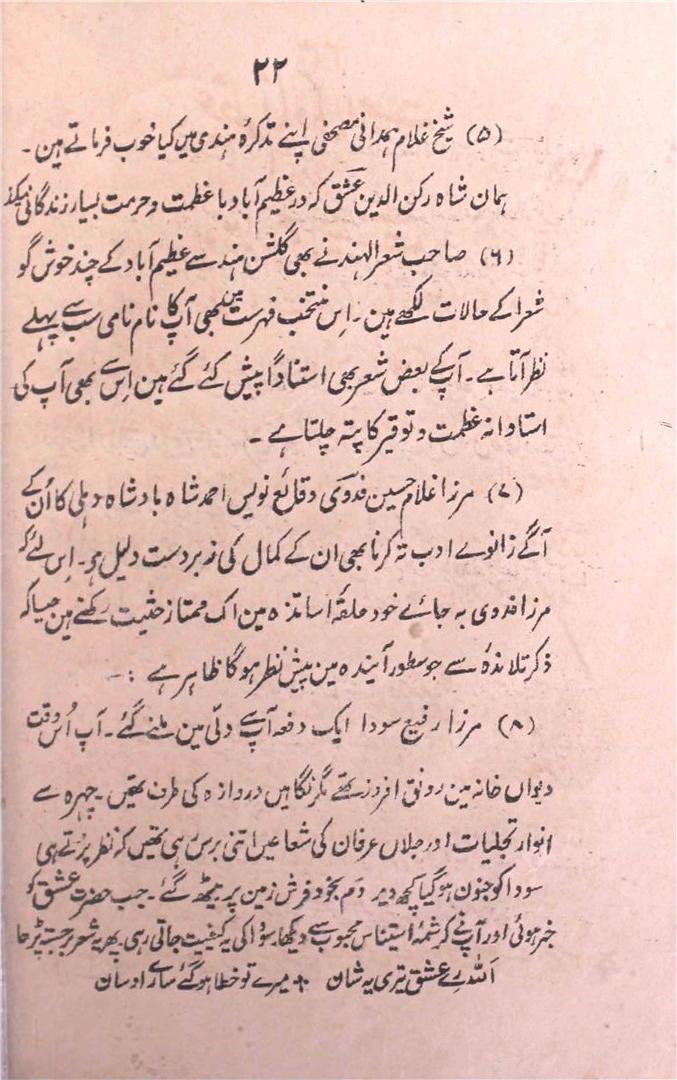 ۲۲
(۵) شیخ غلام ہمدانی مصحفی اپنے تذکرہ ہندی میں کیا خوب فرماتے ہین ۔
ہمان شاہ رکن الدین عشق کہ در عظیم آباد با عظمت و حرمت بسیار زندگانی میکند
(۶) صاحب شعر الہند نے بھی گلشن ہند سے عظیم آباد کے چند خوش گو
شعرا کے حالات لکھے ہین ۔ اِس منتخب فہرست میں بھی آپ کا نام نامی سب سے پہلے
نظر آتا ہے ۔ آپ کے بعض شعر بھی استناداً پیش کئے گئے ہین اِس سے بھی آپ کی
استادانہ عظمت و توقیر کا پتہ چلتا ہے ۔
(۷) مرزا غلام حسین فدوی وقائع نویس احمد شاہ بادشاہ دہلی کا اُن کے
آگے زانوے ادب تہ کرنا بھی ان کے کمال کی زبردست دلیل ہو ۔ اِس لئے کہ
مرزا فدوی بہ جائے خود حلقۂ اساتذہ مین اک ممتاز حثیت رکھتے ہین جیسا کہ
ذکر تلامذہ سے جو سطور آیندہ مین پیش نظر ہوگا ظاہر ہے :۔
(۸) مرزا رفیع سودا ایک دفعہ آپ سے دلی مین ملنے گئے ۔ آپ اُس وقت
دیوان خانہ مین رونق افروز تھے مگر نگاہیں دروازہ کی طرف تھین ۔ چہرہ سے
انوار تجلیات اور جلال عرفان کی شعاعین اتنی برس رہی تھیں کہ نظر پڑتے ہی
سودا کو جنون ہو گیا کچھ دیر دم بخود فرش زمین پر بیٹھ گئے ۔ جب حضرت عشق کو
خبر ہوئی اور آپ نے کرشمۂ استیناس محبوب سے دیکھا سودا کی یہ کیفیت جاتی رہی ۔ پھر یہ شعر برجستہ پڑھا
اَللہ رے عشق تیری یہ شان + میرے تو خطا ہو گئے سارے اوسان